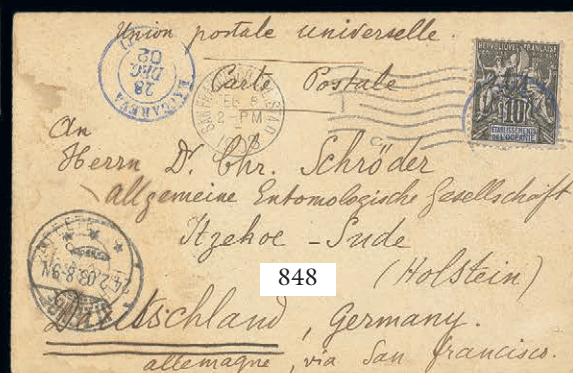 Union postale universelle.
Carte Postale
28
02
FEB 8
2-PM
1903
REPUBLIQUE FRANÇAISE
10
ETABLISSEMENTS
DE L'OCEANIE
An
Herrn Dr. Chr. Schröder
Allgemeine Entomologische Gesellschaft
Itzehoe - Sude
(Holstein)
24.2.03.8-9N.
848
Deutschland, Germany.
allemagne, via San francisco.